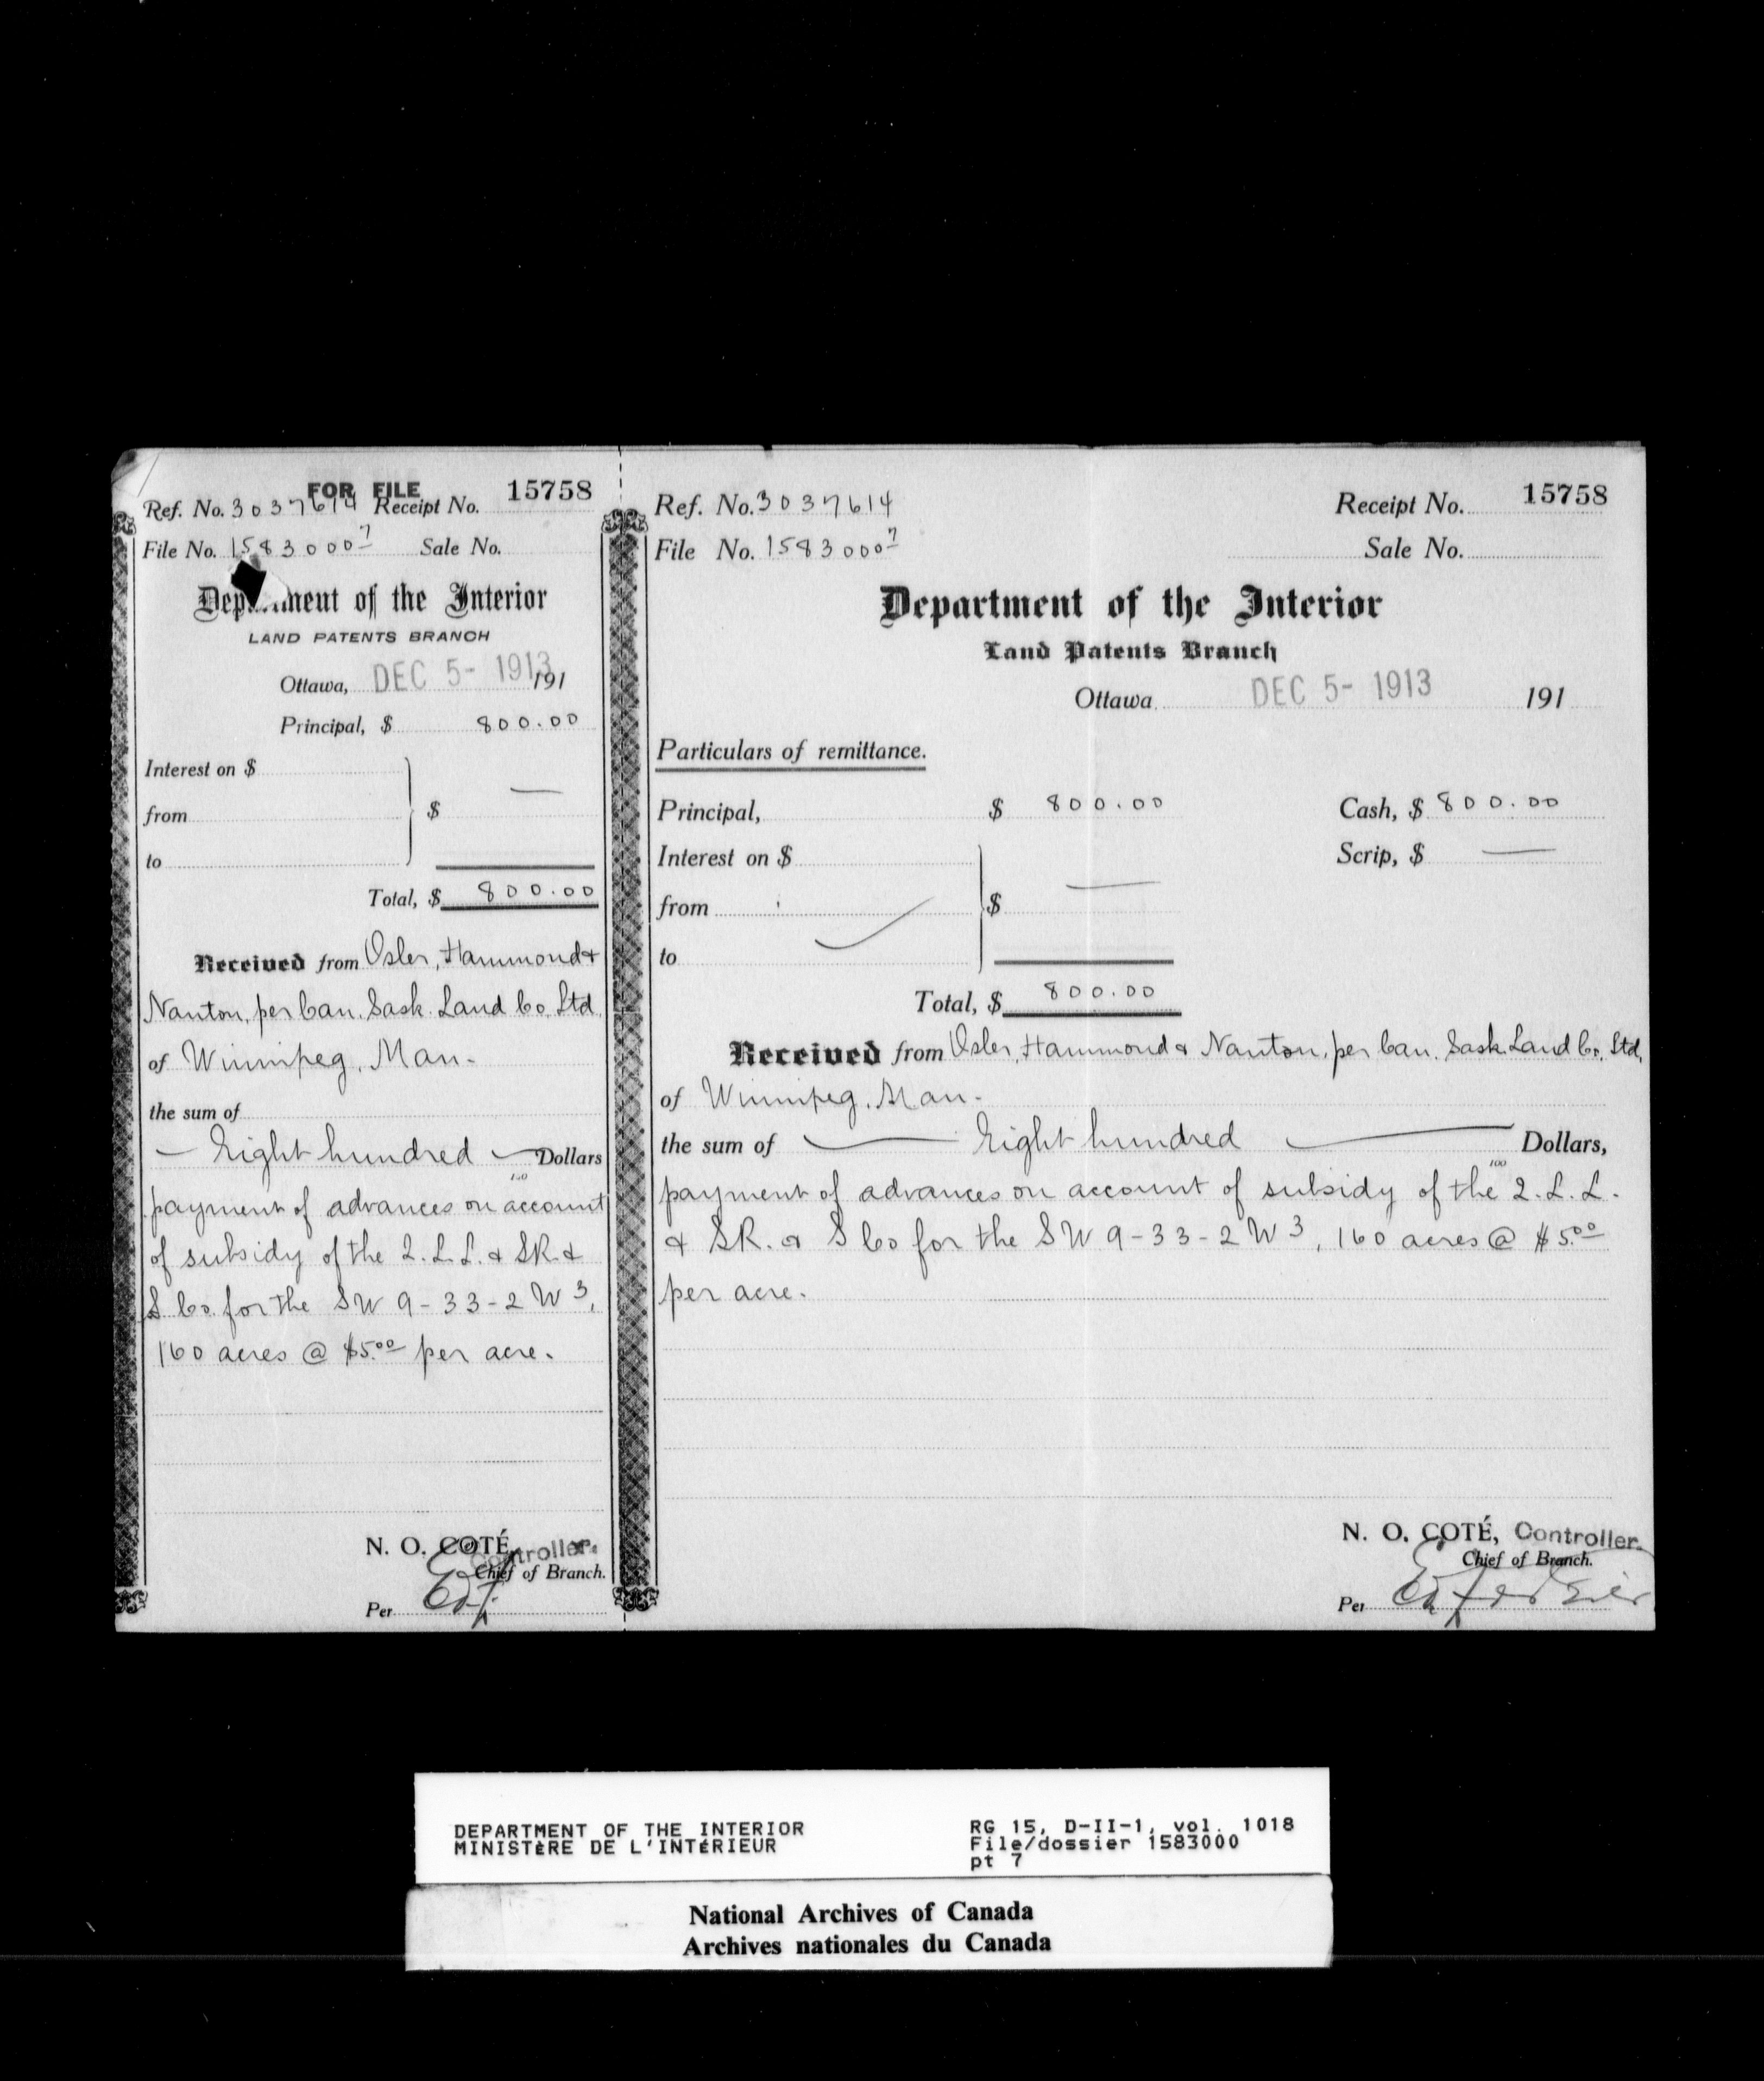 FOR FILE
Ref. No. 3037614 Receipt No. 15758
File No. 1583000 7 Sale No.
Department of the Interior
LAND PATENTS BRANCH
Ottawa, DEC 5- 1913 191
Principal, $ 800.00
Interest on $
from $ —
to
Total, $ 800.00
Received from Osler, Hammond &
Nanton, per Can. Sask. Land Co. Ltd.
of Winnipeg, Man.
the sum of
— Eight hundred — Dollars
100
payment of advances on account
of subsidy of the Q.L.L. & SR. &
S Co. for the SW 9-33-2 W 3,
160 acres @ $5.00 per acre.
N. O. COTÉ,
Controller.
Chief of Branch.
Per
Ref. No. 3037614 Receipt No. 15758
File No. 1583000 7 Sale No.
Department of the Interior
Land Patents Branch
Ottawa DEC 5- 1913 191
Particulars of remittance.
Principal, $ 800.00 Cash, $ 800.00
Interest on $ Scrip, $ —
from $ —
to
Total, $ 800.00
Received from Osler, Hammond & Nanton, per Can. Sask. Land Co. Ltd.
of Winnipeg, Man.
the sum of — Eight hundred — Dollars,
100
payment of advances on account of subsidy of the Q.L.L.
& SR. & S Co for the SW 9-33-2 W 3, 160 acres @ $5.00
per acre.
N. O. COTÉ, Controller.
Chief of Branch.
Per
DEPARTMENT OF THE INTERIOR
MINISTÈRE DE L'INTÉRIEUR
RG 15, D-II-1, vol. 1018
File/dossier 1583000
pt 7
National Archives of Canada
Archives nationales du Canada